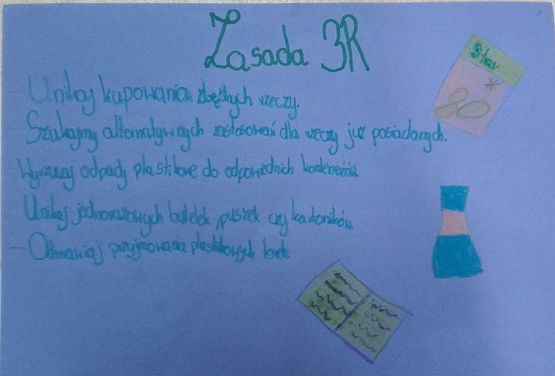 Zasada 3R
- Unikaj kupowania zbędnych rzeczy.
- Szukajmy alternatywnych zastosowań dla rzeczy już posiadanych.
- Wyrzucaj odpady plastikowe do odpowiednich kontenerów
- Unikaj jednorazowych butelek, puszek czy kartoników
- Odmawiaj przyjmowania plastikowych toreb
Star